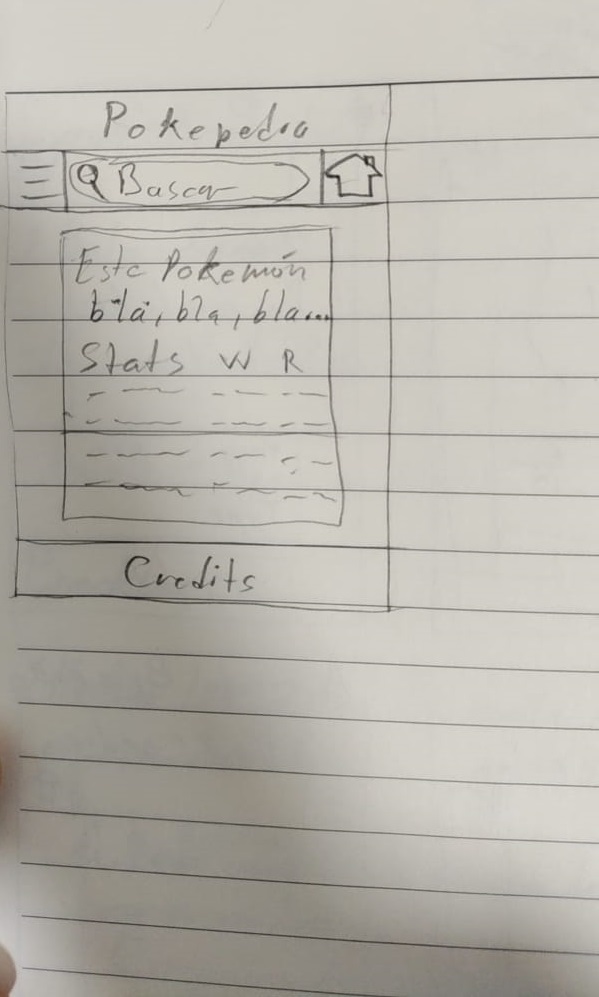 Pokepedia
Buscar
Este Pokemón
bla, bla, bla...
Stats W R
Credits